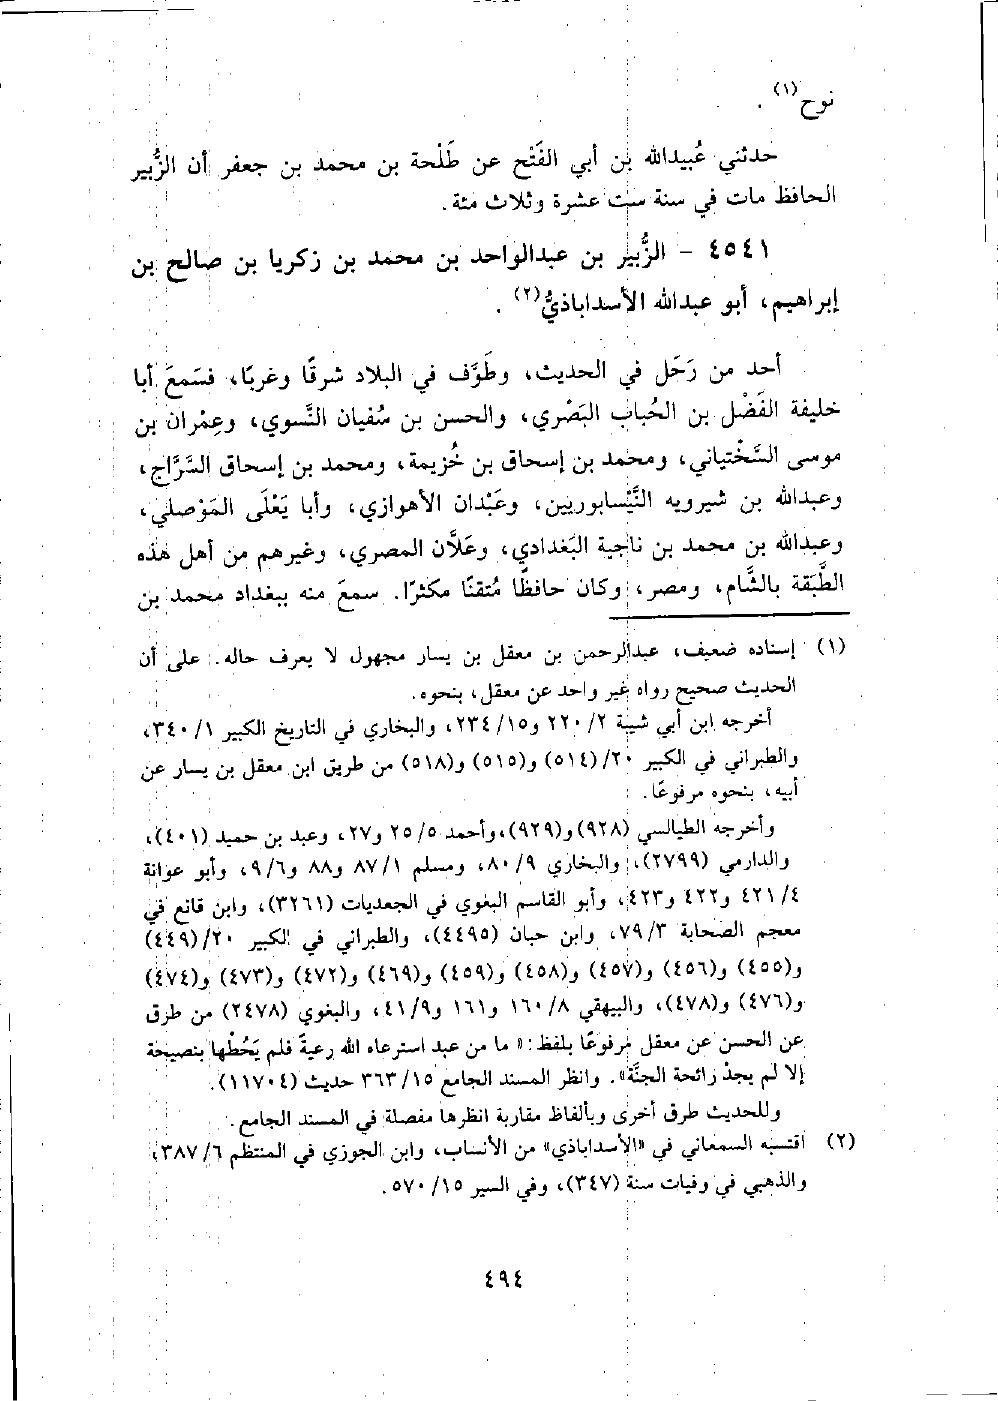 نوح(١) .
حدثني عُبيدالله بن أبي الفَتْح عن طَلْحة بن محمد بن جعفر أن الزُّبير
الحافظ مات في سنة ست عشرة وثلاث مئة.
٤٥٤١ - الزُّبير بن عبدالواحد بن محمد بن زكريا بن صالح بن
إبراهيم، أبو عبدالله الأسداباذيُّ(٢) .
أحد من رَحَل في الحديث، وطَوَّف في البلاد شرقًا وغربًا، فسَمعَ أبا
خليفة الفَضْل بن الحُباب البَصْري، والحسن بن سُفيان النَّسوي، وعِمْران بن
موسى السَّخْتياني، ومحمد بن إسحاق بن خُزيمة، ومحمد بن إسحاق السَّرَّاج،
وعبدالله بن شيرويه النَّيْسابوريين، وعَبْدان الأهوازي، وأبا يَعْلَى المَوْصلي،
وعبدالله بن محمد بن ناجية البَغدادي، وعَلَّان المصري، وغيرهم من أهل هذه
الطَّبَقة بالشَّام، ومصر، وكان حافظًا مُتقنًا مكثرًا. سمعَ منه ببغداد محمد بن
(١) إسناده ضعيف، عبدالرحمن بن معقل بن يسار مجهول لا يعرف حاله. على أن
الحديث صحيح رواه غير واحد عن معقل، بنحوه.
أخرجه ابن أبي شيبة ٢/ ٢٢٠ و١٥/ ٢٣٤، والبخاري في التاريخ الكبير ١/ ٣٤٠،
والطبراني في الكبير ٢٠/ (٥١٤) و(٥١٥) و(٥١٨) من طريق ابن معقل بن يسار عن
أبيه، بنحوه مرفوعًا.
وأخرجه الطيالسي (٩٢٨) و(٩٢٩)، وأحمد ٥/ ٢٥ و٢٧، وعبد بن حميد (٤٠١)،
والدارمي (٢٧٩٩)، والبخاري ٩/ ٨٠، ومسلم ١/ ٨٧ و٨٨ و٦/ ٩، وأبو عوانة
٤/ ٤٢١ و٤٢٢ و٤٢٣، وأبو القاسم البغوي في الجعديات (٣٢٦١)، وابن قانع في
معجم الصحابة ٣/ ٧٩، وابن حبان (٤٤٩٥)، والطبراني في الكبير ٢٠/ (٤٤٩)
و(٤٥٥) و(٤٥٦) و(٤٥٧) و(٤٥٨) و(٤٥٩) و(٤٦٩) و(٤٧٢) و(٤٧٣) و(٤٧٤)
و(٤٧٦) و(٤٧٨)، والبيهقي ٨/ ١٦٠ و١٦١ و٩/ ٤١، والبغوي (٢٤٧٨) من طرق
عن الحسن عن معقل مرفوعًا بلفظ: «ما من عبد استرعاه الله رعيةً فلم يَحُطْها بنصيحة
إلا لم يجدْ رائحة الجنَّة». وانظر المسند الجامع ١٥/ ٣٦٣ حديث (١١٧٠٤).
وللحديث طرق أخرى وبألفاظ مقاربة انظرها مفصلة في المسند الجامع.
(٢) اقتبسه السمعاني في «الأسداباذي» من الأنساب، وابن الجوزي في المنتظم ٦/ ٣٨٧،
والذهبي في وفيات سنة (٣٤٧)، وفي السير ١٥/ ٥٧٠.
٤٩٤